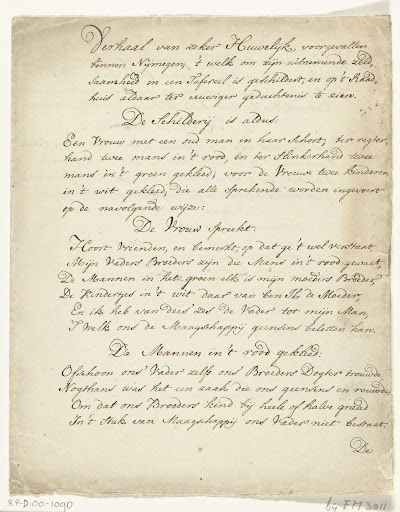 Verhaal van zeker Huwelijk, voorgevallen
binnen Nijmegen, 't welk om zijn uitnemende zeld,
saamheid in een Tafereel is geschildert, en op 't Raad
huis aldaar ter eeuwiger geduchtenis te zien.
De Schilderij is aldus:
Een Vrouw met een oud man in haar Schoot, ter regter,
hand twee mans in 't rood, en ter slinkerhand twee
mans in 't groen gekleed; voor de Vrouw twee kinderen
in 't wit gekleed, die alle sprekende worden ingevoert
op de navolgende wijze:
De Vrouw spreekt.
Hoort Vrienden, en bemerkt, op dat ge 't wel verstaat
Mijn Vaders Broeders zijn die Mans in 't rood gewaet,
De Mannen in het groen elk is mijn moeders Broeder,
De Kindertjes in 't wit daar van ben Ik de Moeder,
En ik heb van dees' zes de Vader tot mijn Man,
't Welk ons de Maagschappij geensins beletten kan.
De Mannen in 't rood gekleed.
Ofschoon ons' Vader zelfs ons Broeders Dogter trouwde,
Nogthans was het een zaak die ons geensins en rouwde,
Om dat ons Broeders kind bij heele of halve graad
In 't stuk van Maagschappij ons Vader niet bestaat.
De
RP-D-00-1090
by FM 3011